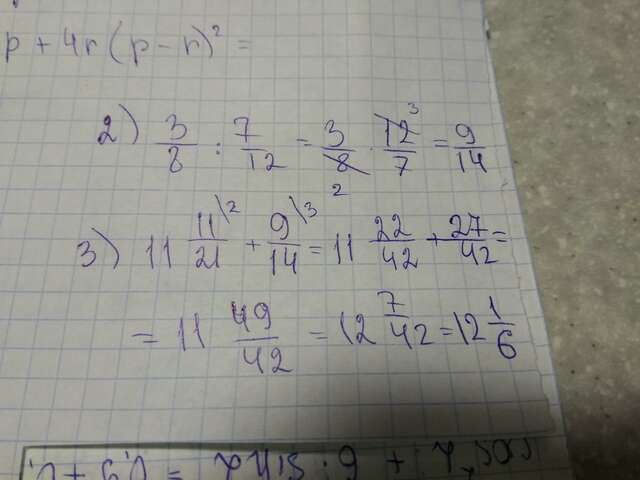 p + 4r (p - r)² =
2) 3/8 : 7/12 = 3/8 · 12/7 = 9/14
3) 11 11/21 + 9/14 = 11 22/42 + 27/42 =
= 11 49/42 = 12 7/42 = 12 1/6